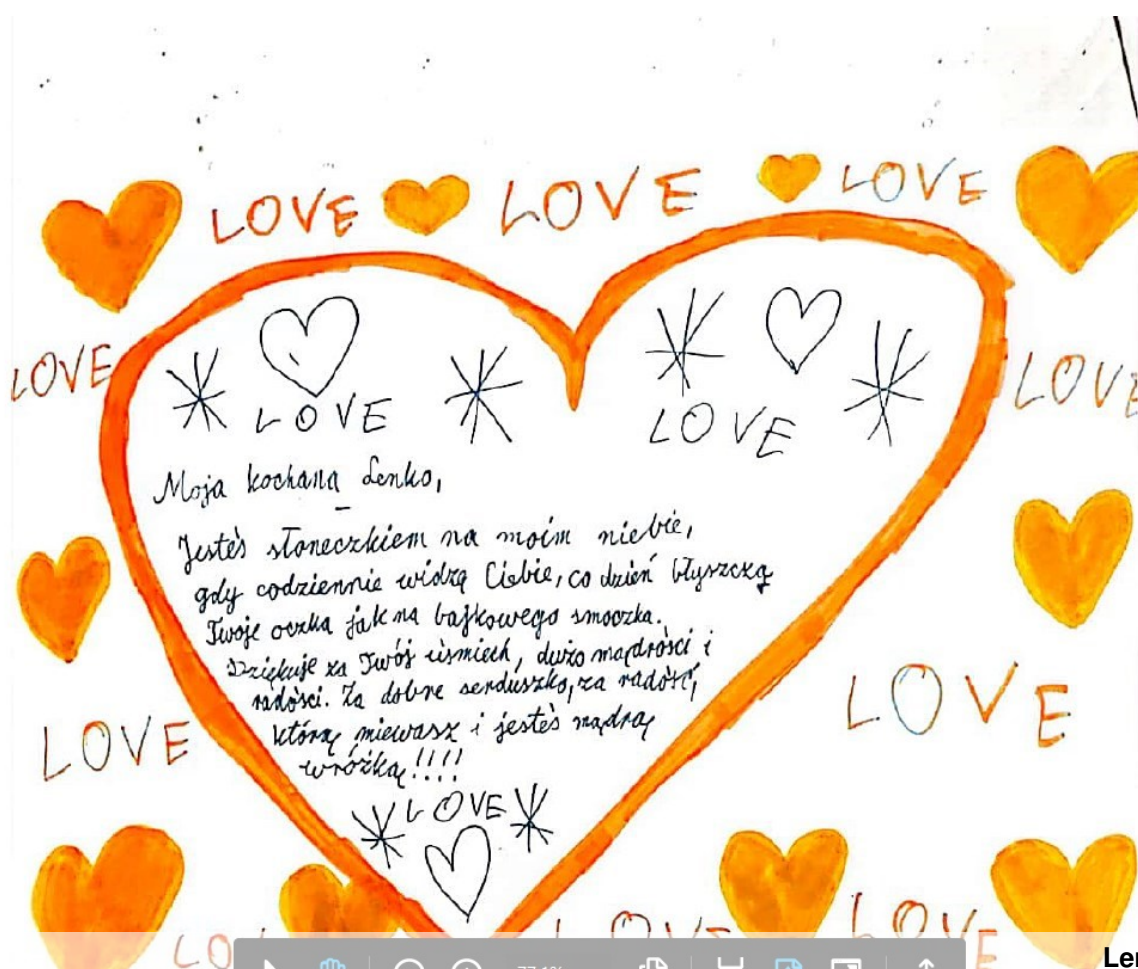 LOVE LOVE LOVE
LOVE LOVE
LOVE LOVE
Moja kochaną Lenko,
Jesteś słoneczkiem na moim niebie,
gdy codziennie widzę Ciebie, co dzień błyszczą
Twoje oczka jak na bajkowego smoczka.
Dziękuje za Twój uśmiech, dużo mądrości i
radości. Za dobre serduszko, za radość,
którą miewasz i jesteś mądrą
wróżką!!!!
LOVE LOVE
LOVE
LOVE LOVE
77,1%